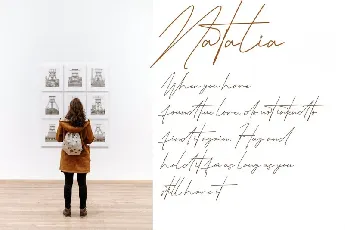 Natalia
When you have
found true love do not intend to
find it again. Hug and
hold it for as long as you
still have it